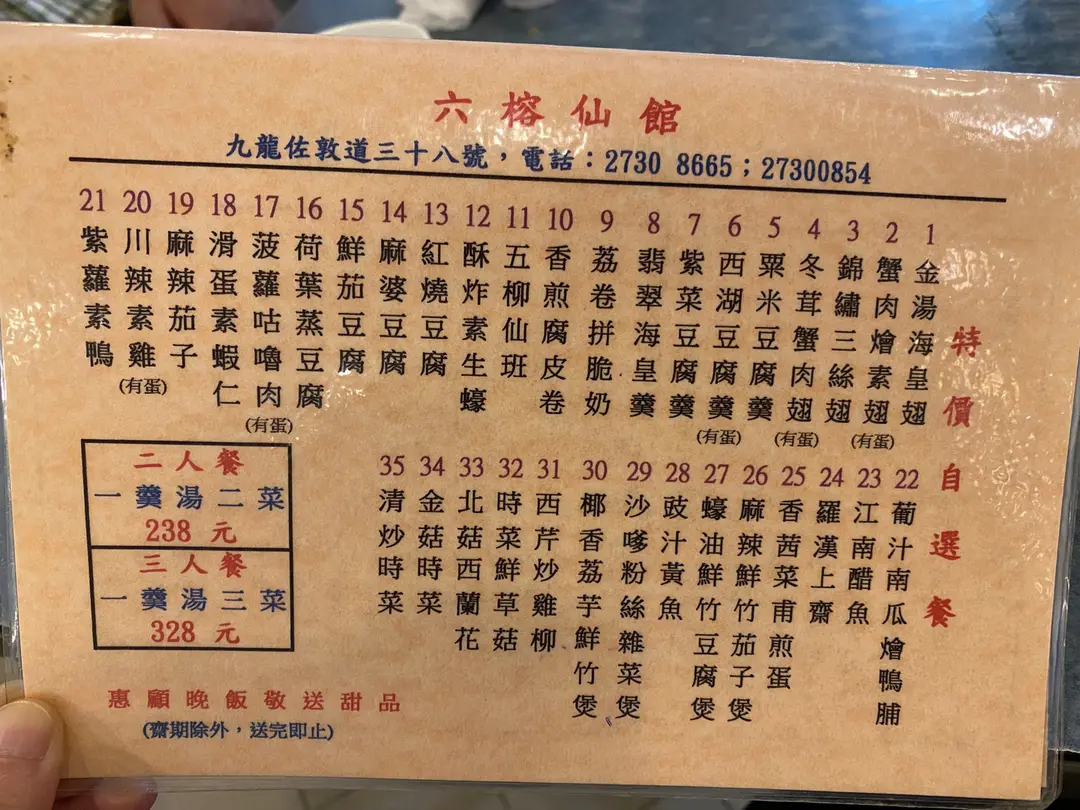 六榕仙館
九龍佐敦道三十八號，電話：2730 8665；27300854
特價自選餐
1 金湯海皇翅
2 蟹肉燴素翅(有蛋)
3 錦繡三絲翅
4 冬茸蟹肉翅(有蛋)
5 粟米豆腐羹
6 西湖豆腐羹(有蛋)
7 紫菜豆腐羹
8 翡翠海皇羹
9 荔卷拼脆奶
10 香煎腐皮卷
11 五柳仙班
12 酥炸素生蠔
13 紅燒豆腐
14 麻婆豆腐
15 鮮茄豆腐
16 荷葉蒸豆腐
17 菠蘿咕嚕肉(有蛋)
18 滑蛋素蝦仁
19 麻辣茄子
20 川辣素雞(有蛋)
21 紫蘿素鴨
22 葡汁南瓜燴鴨脯
23 江南醋魚
24 羅漢上齋
25 香茜菜甫煎蛋
26 麻辣鮮竹茄子煲
27 蠔油鮮竹豆腐煲
28 豉汁黃魚
29 沙嗲粉絲雜菜煲
30 椰香荔芋鮮竹煲
31 西芹炒雞柳
32 時菜鮮草菇
33 北菇西蘭花
34 金菇時菜
35 清炒時菜
二人餐
一羹湯二菜
238 元
三人餐
一羹湯三菜
328 元
惠顧晚飯敬送甜品
(齋期除外，送完即止)